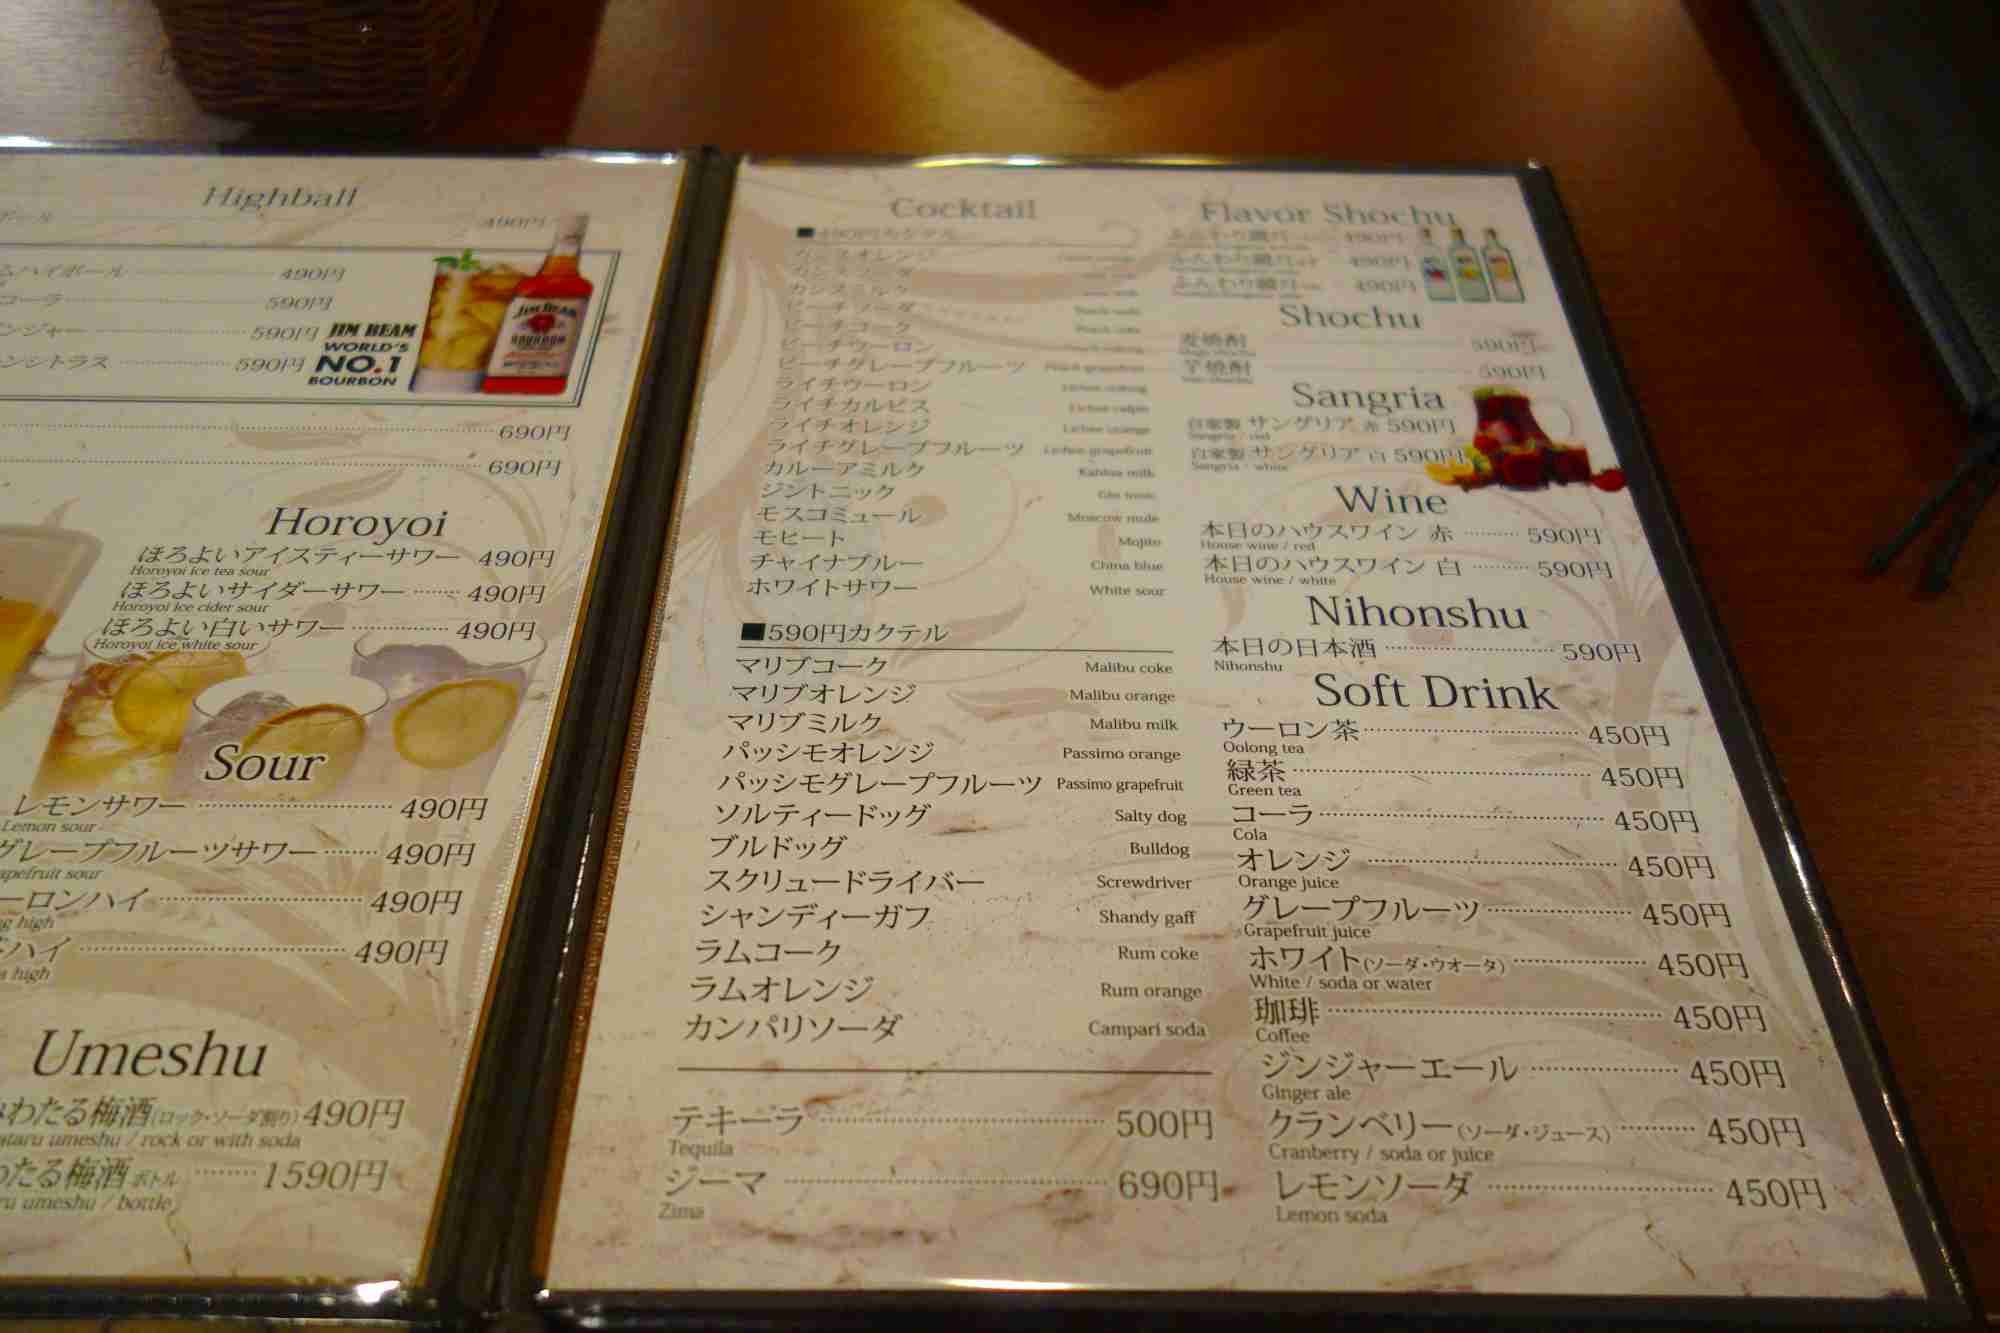 Highball
490円
ハイボール 490円
コーラ 590円
ンジャー 590円
ンシトラス 590円
JIM BEAM
WORLD'S
NO.1
BOURBON
JIM BEAM
690円
690円
Horoyoi
ほろよいアイスティーサワー 490円
Horoyoi ice tea sour
ほろよいサイダーサワー 490円
Horoyoi ice cider sour
ほろよい白いサワー 490円
Horoyoi ice white sour
Sour
レモンサワー 490円
Lemon sour
グレープフルーツサワー 490円
apefruit sour
ーロンハイ 490円
ng high
ハイ 490円
a high
Umeshu
わたる梅酒(ロック・ソーダ割り) 490円
ataru umeshu / rock or with soda
わたる梅酒 ボトル 1590円
ru umeshu / bottle
Cocktail
■490円カクテル
カシスオレンジ
カシスソーダ
カシスミルク
ピーチソーダ
ピーチコーク
ピーチウーロン
ピーチグレープフルーツ Peach grapefruit
ライチウーロン Lichee oolong
ライチカルピス Lichee calpis
ライチオレンジ Lichee orange
ライチグレープフルーツ Lichee grapefruit
カルーアミルク Kahlua milk
ジントニック Gin tonic
モスコミュール Moscow mule
モヒート Mojito
チャイナブルー China blue
ホワイトサワー White sour
■590円カクテル
マリブコーク Malibu coke
マリブオレンジ Malibu orange
マリブミルク Malibu milk
パッシモオレンジ Passimo orange
パッシモグレープフルーツ Passimo grapefruit
ソルティードッグ Salty dog
ブルドッグ Bulldog
スクリュードライバー Screwdriver
シャンディーガフ Shandy gaff
ラムコーク Rum coke
ラムオレンジ Rum orange
カンパリソーダ Campari soda
テキーラ 500円
Tequila
ジーマ 690円
Zima
Flavor Shochu
ふんわり鏡月 490円
ふんわり鏡月 490円
ふんわり鏡月 490円
Shochu
麦焼酎 590円
Mugi shochu
芋焼酎 590円
Imo shochu
Sangria
自家製 サングリア 赤 590円
Sangria / red
自家製 サングリア 白 590円
Sangria / white
Wine
本日のハウスワイン 赤 590円
House wine / red
本日のハウスワイン 白 590円
House wine / white
Nihonshu
本日の日本酒 590円
Nihonshu
Soft Drink
ウーロン茶 450円
Oolong tea
緑茶 450円
Green tea
コーラ 450円
Cola
オレンジ 450円
Orange juice
グレープフルーツ 450円
Grapefruit juice
ホワイト(ソーダ・ウオータ) 450円
White / soda or water
珈琲 450円
Coffee
ジンジャーエール 450円
Ginger ale
クランベリー(ソーダ・ジュース) 450円
Cranberry / soda or juice
レモンソーダ 450円
Lemon soda